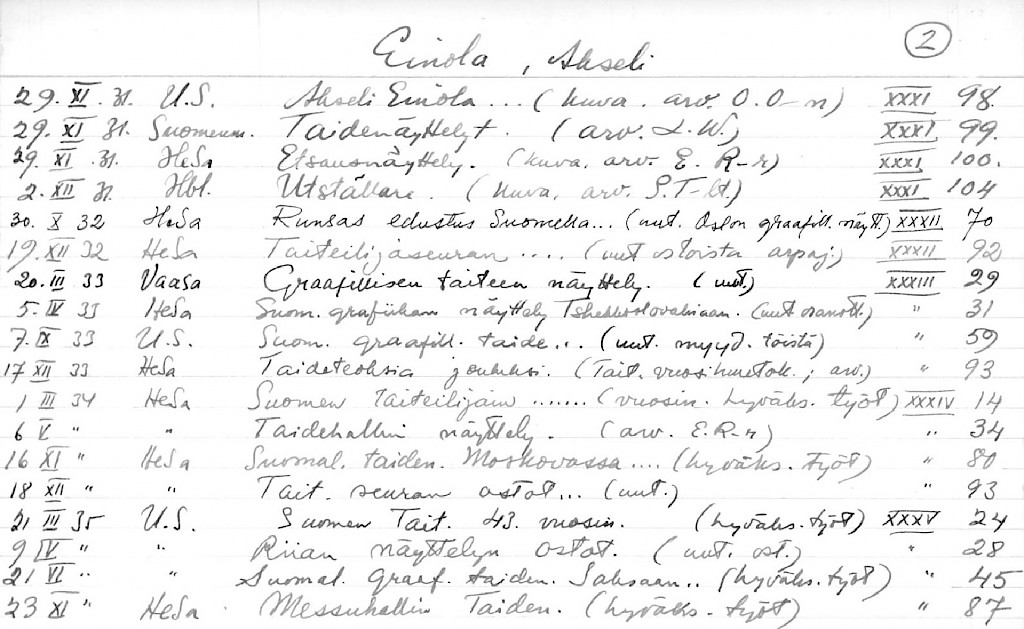 Einola, Akseli 2
29. XI. 31. U.S. Akseli Einola... (kuva. arv. O.O-n) XXXI 98.
29. XI 31. Suomenm. Taidenäyttelyt. (arv. L.W.) XXXI 99.
29. XI. 31. HeSa Etsausnäyttely. (kuva. arv. E. R-r) XXXI 100.
2. XII 31 Hbl. Utställare. (kuva, arv. S.T-lt) XXXI 104
30. X 32 HeSa Runsas edustus Suomella... (mt. Oslon graafill. näytt.) XXXII 70
19. XII 32 HeSa Taiteilijaseuran .... (mt ostoista arpaj.) XXXII 92
20. III 33 Vaasa Graafillisen taiteen näyttely. (mt.) XXXIII 29
5. IV 33 HeSa Suom. grafiikan näyttely Tshekkoslovakiaan. (mt osanott.) " 31
7. IX 33 U.S. Suom. graafill. taide... (mt. myyd. töistä) " 59
17 XII 33 HeSa Taideteoksia jouluksi. (Tait. vuosihuutok.; arv.) " 93
1 III 34 HeSa Suomen Taiteilijain ....... (vuosin. hyväks. työt) XXXIV 14
6 V " " Taidehallin näyttely. (arv. E.R-r) " 34
16 XI " HeSa Suomal. taiden. Moskovassa.... (hyväks. työt) " 80
18 XII " " Tait. seuran ostot... (mt.) " 93
21 III 35 U.S. Suomen Tait. 43. vuosin. (hyväks. työt) XXXV 24
9 IV " " Riian näyttelyn ostot. (mt. ost.) " 28
21 VI " " Suomal. graaf. taiden. Saksaan.. (hyväks. työt) " 45
23 XI " HeSa Messuhallin Taiden. (hyväks. työt) " 87